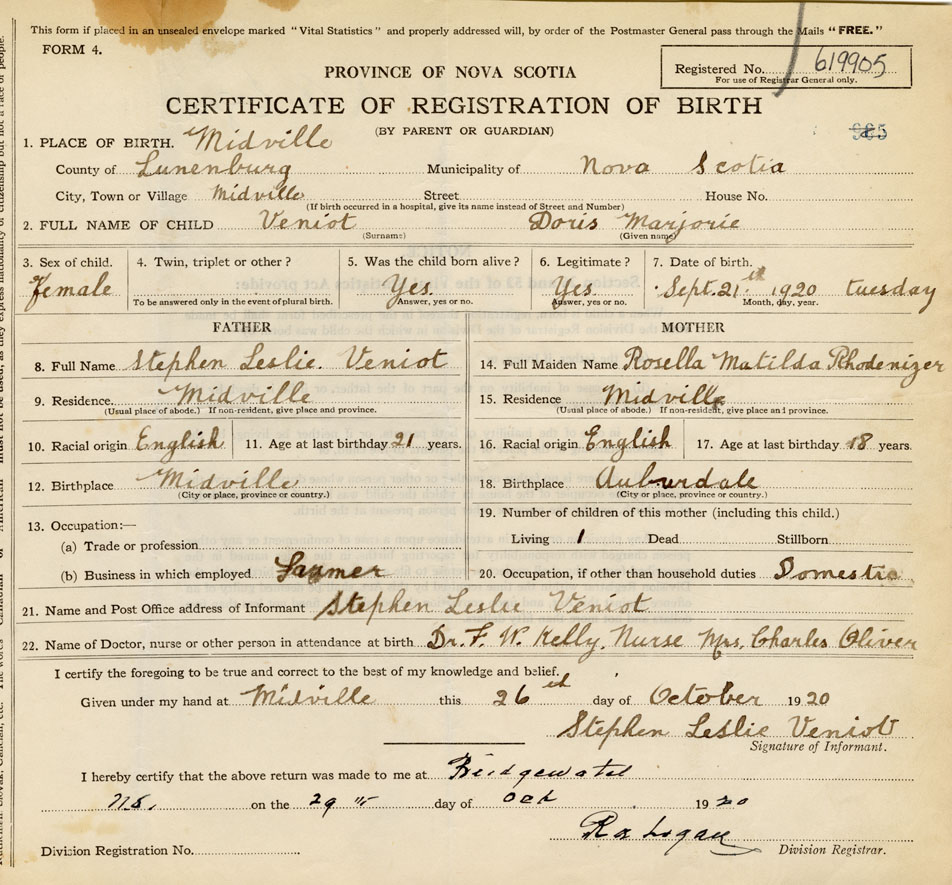 This form if placed in an unsealed envelope marked "Vital Statistics" and properly addressed will, by order of the Postmaster General pass through the Mails "FREE."
FORM 4.
Registered No. 619905
For use of Registrar General only.
PROVINCE OF NOVA SCOTIA
CERTIFICATE OF REGISTRATION OF BIRTH
(BY PARENT OR GUARDIAN)
1. PLACE OF BIRTH. Midville
County of Lunenburg Municipality of Nova Scotia
City, Town or Village Midville Street House No.
(If birth occurred in a hospital, give its name instead of Street and Number)
2. FULL NAME OF CHILD Veniot Doris Marjorie
(Surname) (Given name)
3. Sex of child. 4. Twin, triplet or other? 5. Was the child born alive? 6. Legitimate? 7. Date of birth.
Female Yes. Yes. Sept. 21st 1920 tuesday
To be answered only in the event of plural birth. Answer, yes or no. Answer, yes or no. Month, day, year.
FATHER MOTHER
8. Full Name Stephen Leslie. Veniot 14. Full Maiden Name Rosella Matilda Rhodenizer
9. Residence. Midville 15. Residence Midville
(Usual place of abode.) If non-resident, give place and province. (Usual place of abode.) If non-resident, give place and province.
10. Racial origin English 11. Age at last birthday 21 years. 16. Racial origin English 17. Age at last birthday 18 years.
12. Birthplace Midville 18. Birthplace Auburdale
(City or place, province or country.) (City or place, province or country.)
19. Number of children of this mother (including this child.)
13. Occupation:—
(a) Trade or profession Living 1 Dead Stillborn
(b) Business in which employed Farmer 20. Occupation, if other than household duties Domestic
21. Name and Post Office address of Informant Stephen Leslie Veniot
22. Name of Doctor, nurse or other person in attendance at birth Dr. F. W. Kelly, Nurse Mrs. Charles Oliver
I certify the foregoing to be true and correct to the best of my knowledge and belief.
Given under my hand at Midville this 26th day of October 1920
Stephen Leslie Veniot
Signature of Informant.
I hereby certify that the above return was made to me at Bridgewater
N.S. on the 29th day of Oct 1920
Division Registration No. Division Registrar.